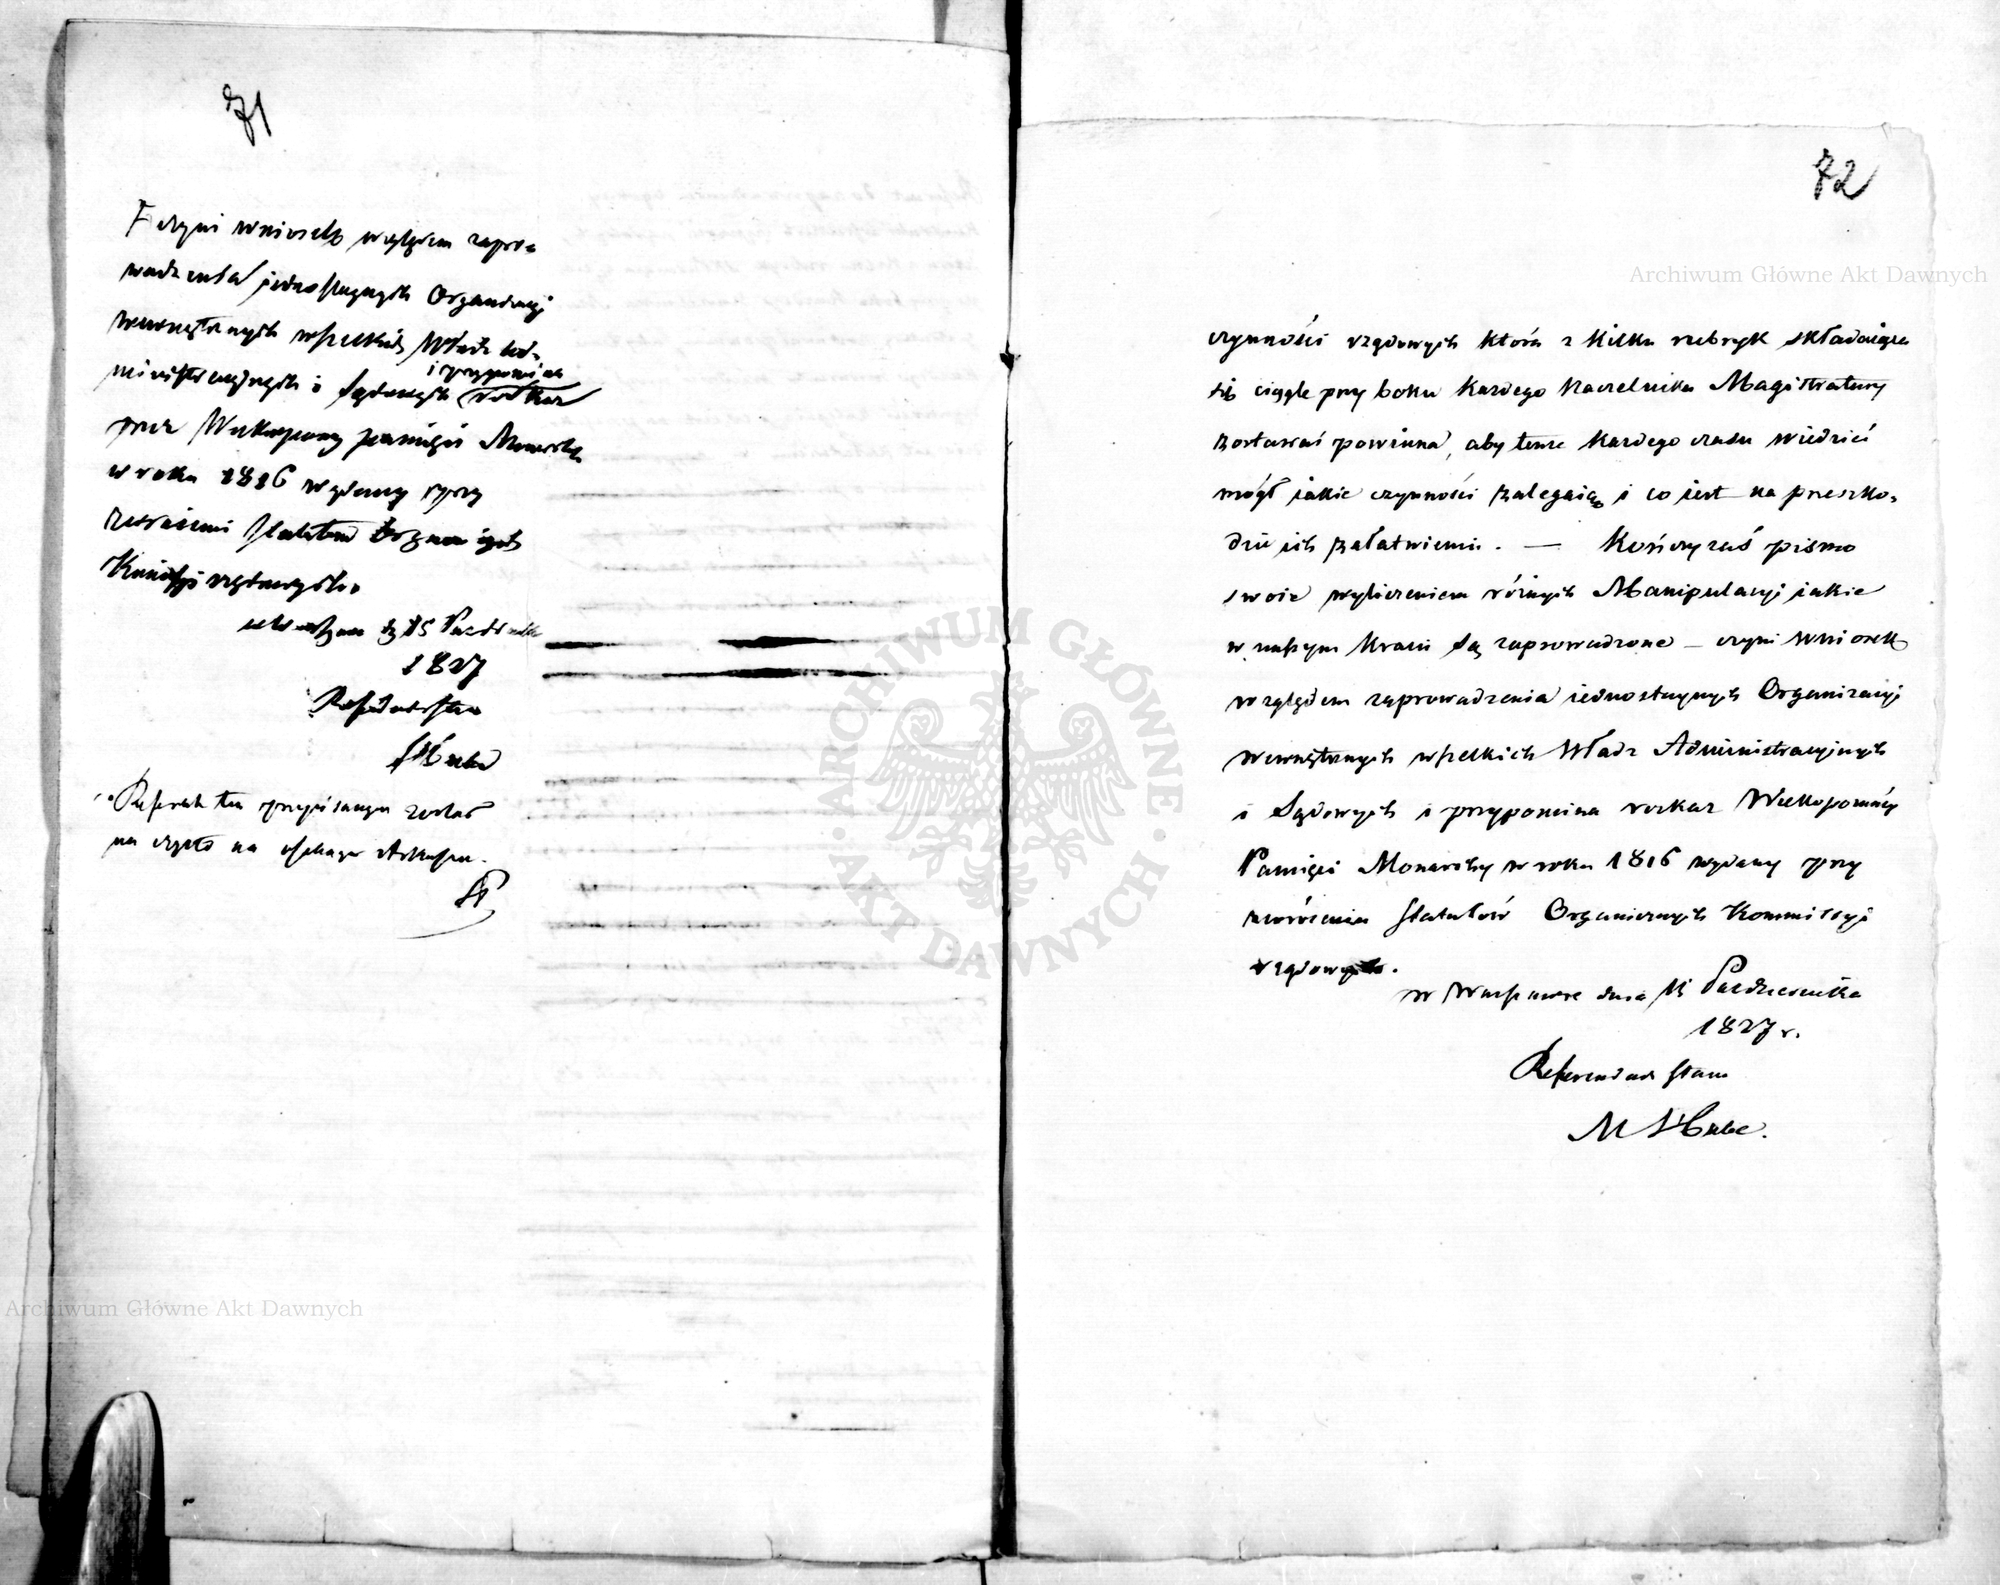 71
F czyni wniosek względem zapro-
wadzenia jednostaynych Organizacyi
wewnętrznych wszelkich Władz Ad-
i przypomina
ministracyjnych i Sądowych rozkaz
przez Wiekopomny pamięci Monarchę
w roku 1816 wydany przy
Statutów Organicznych
Kommissyi rządowych.
w Warszawie d. 15 Październ
1827
Referendarz Stanu
MHube
Referat ten przepisany został
na czysto na Arkuszu.
72
czynności rządowych która z kilku rubryk składaiąca
się ciągle przy boku każdego Naczelnika Magistratury
zostawać powinna, aby tenże każdego czasu wiedzieć
mógł jakie czynności zalegaią i co iest na przeszko-
dzie ich załatwieniu. — Kończy zaś pismo
swoie wyliczeniem różnych Manipulacyi iakie
w naszym Kraiu są zaprowadzone – czyni wniosek
względem zaprowadzenia iednostaynych Organizacyi
wewnętrznych wszelkich Władz Administracyjnych
i Sądowych i przypomina rozkaz Wiekopomney
Pamięci Monarchy w roku 1816 wydany przy
Statutów Organicznych Kommissyi
rządowych.
w Warszawie dnia 15 Października
1827 r.
Referendarz Stanu
M Hube.
Archiwum Główne Akt Dawnych
Archiwum Główne Akt Dawnych
ARCHIWUM GŁÓWNE
· AKT DAWNYCH ·